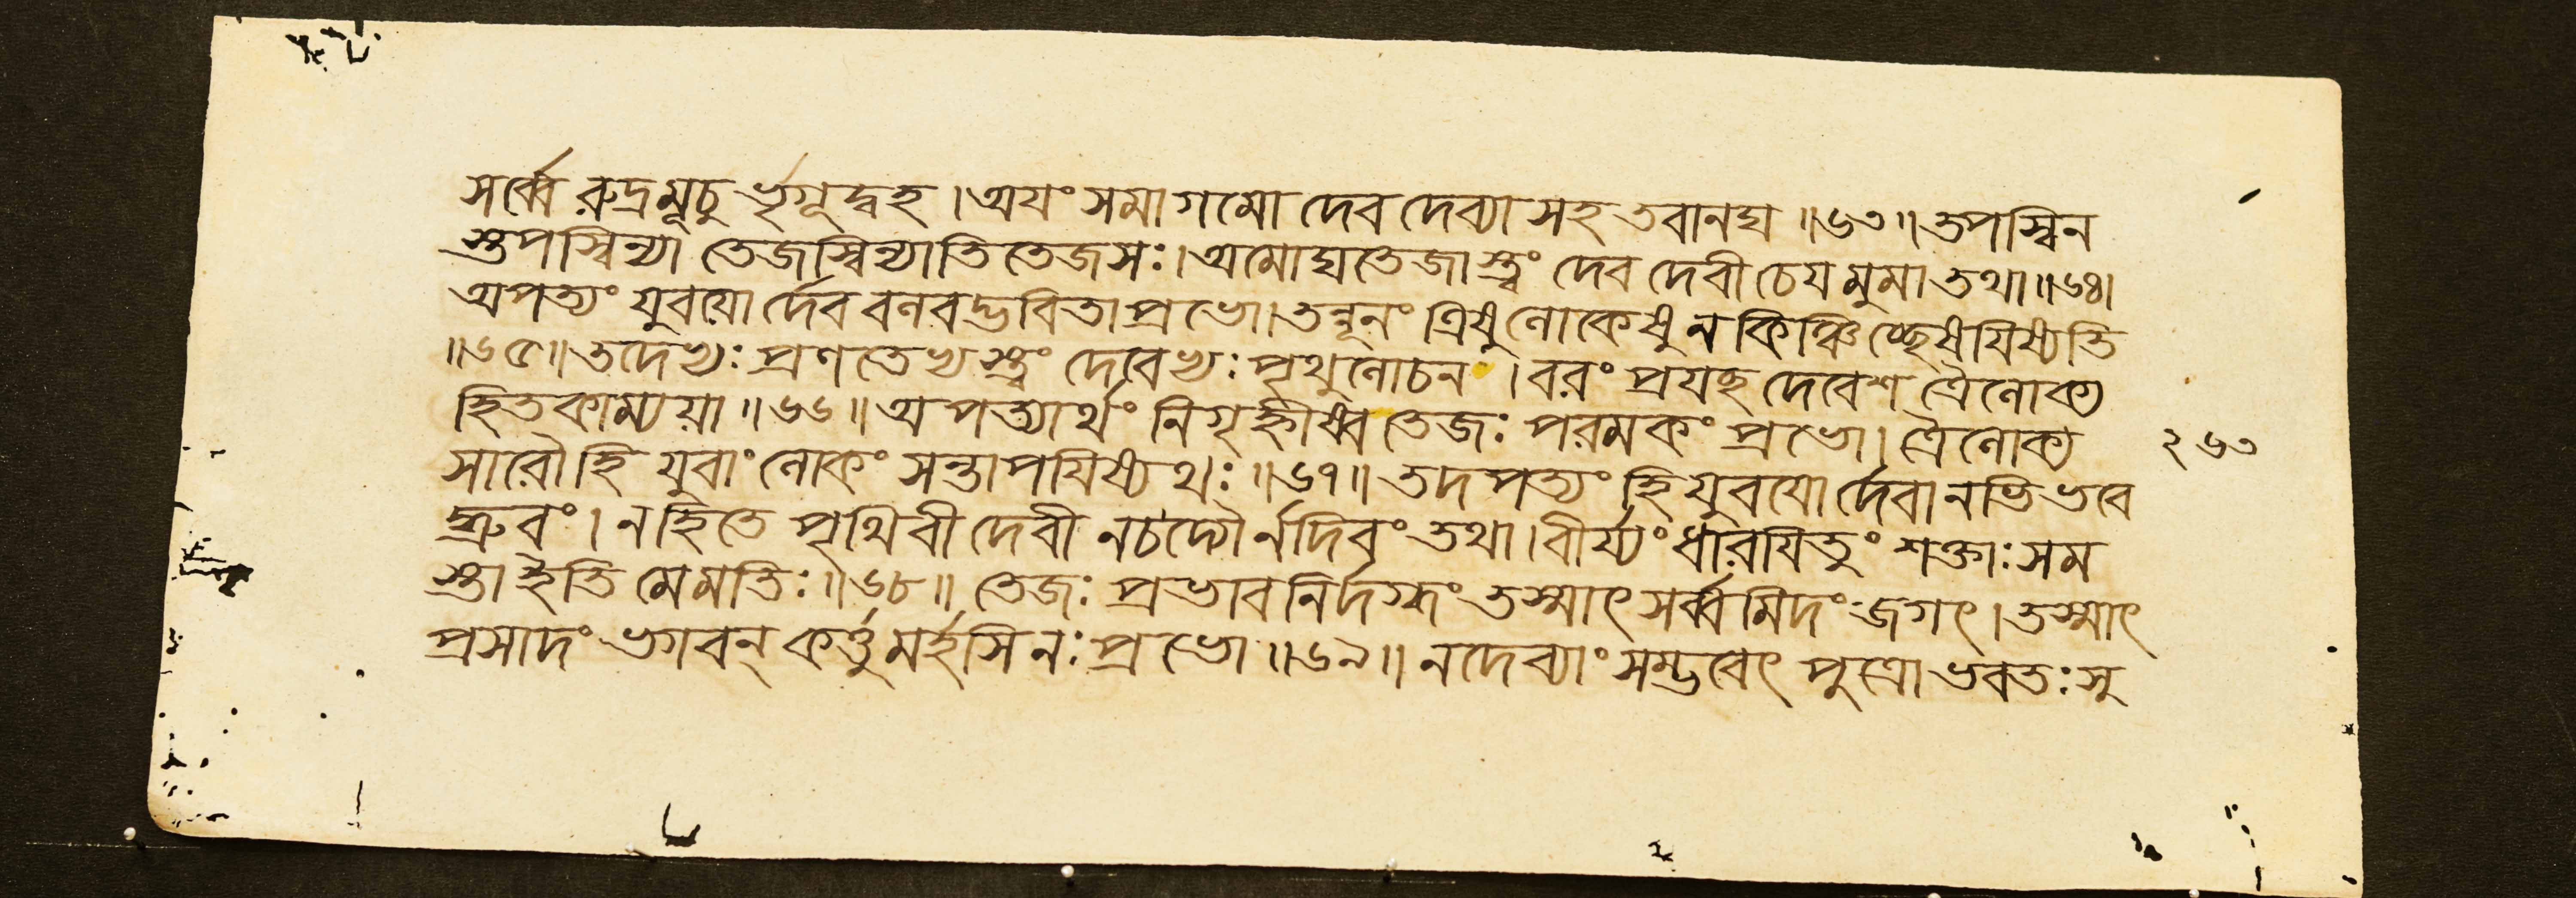 সর্ব্বে রুদ্রমূচু র্ভৃগূদ্বহ । অয়ং সমাগমো দেব দেব্যা সহ তবানঘ ॥ ৬৩ ॥ তপস্বিন
স্তপস্বিন্যা তেজস্বিন্যাতি তেজসঃ । অমোঘতেজাস্ত্বং দেব দেবী চেয়মুমা তথা ॥ ৬৪ ।
অপত্যং যুবয়োর্দেব বলবদ্ভবিতা প্রভো । তন্নূনং ত্রিষু লোকেষু ন কিঞ্চিচ্ছেষয়িষ্যতি
॥ ৬৫ ॥ তদেভ্যঃ প্রণতেভ্যস্ত্বং দেবেভ্যঃ পৃথুলোচন । বরং প্রযচ্ছ দেবেশ ত্রৈলোক্য
হিতকাম্যয়া ॥ ৬৬ ॥ অপত্যার্থং নিগৃহ্নীষ্ব তেজঃ পরমকং প্রভো । ত্রৈলোক্য
সারৌ হি যুবাং লোকং সন্তাপয়িষ্যথঃ ॥ ৬৭ ॥ তদপত্যং হি যুবয়োর্দেবানভিভবে
দ্ধ্রুবং । ন হি তে পৃথিবী দেবী ন চ দ্যৌর্ন দিবং তথা । বীর্য্যং ধারয়িতুং শক্তাঃ সম
স্তা ইতি মে মতিঃ ॥ ৬৮ ॥ তেজঃ প্রভাবনির্দগ্ধং তস্মাৎ সর্ব্বমিদং জগৎ । তস্মাৎ
প্রসাদং ভগবন্ কর্ত্তুমর্হসি নঃ প্রভো ॥ ৬৯ ॥ ন দেব্যাং সম্ভবেৎ পুত্রো ভবতঃ সু
২৬৩